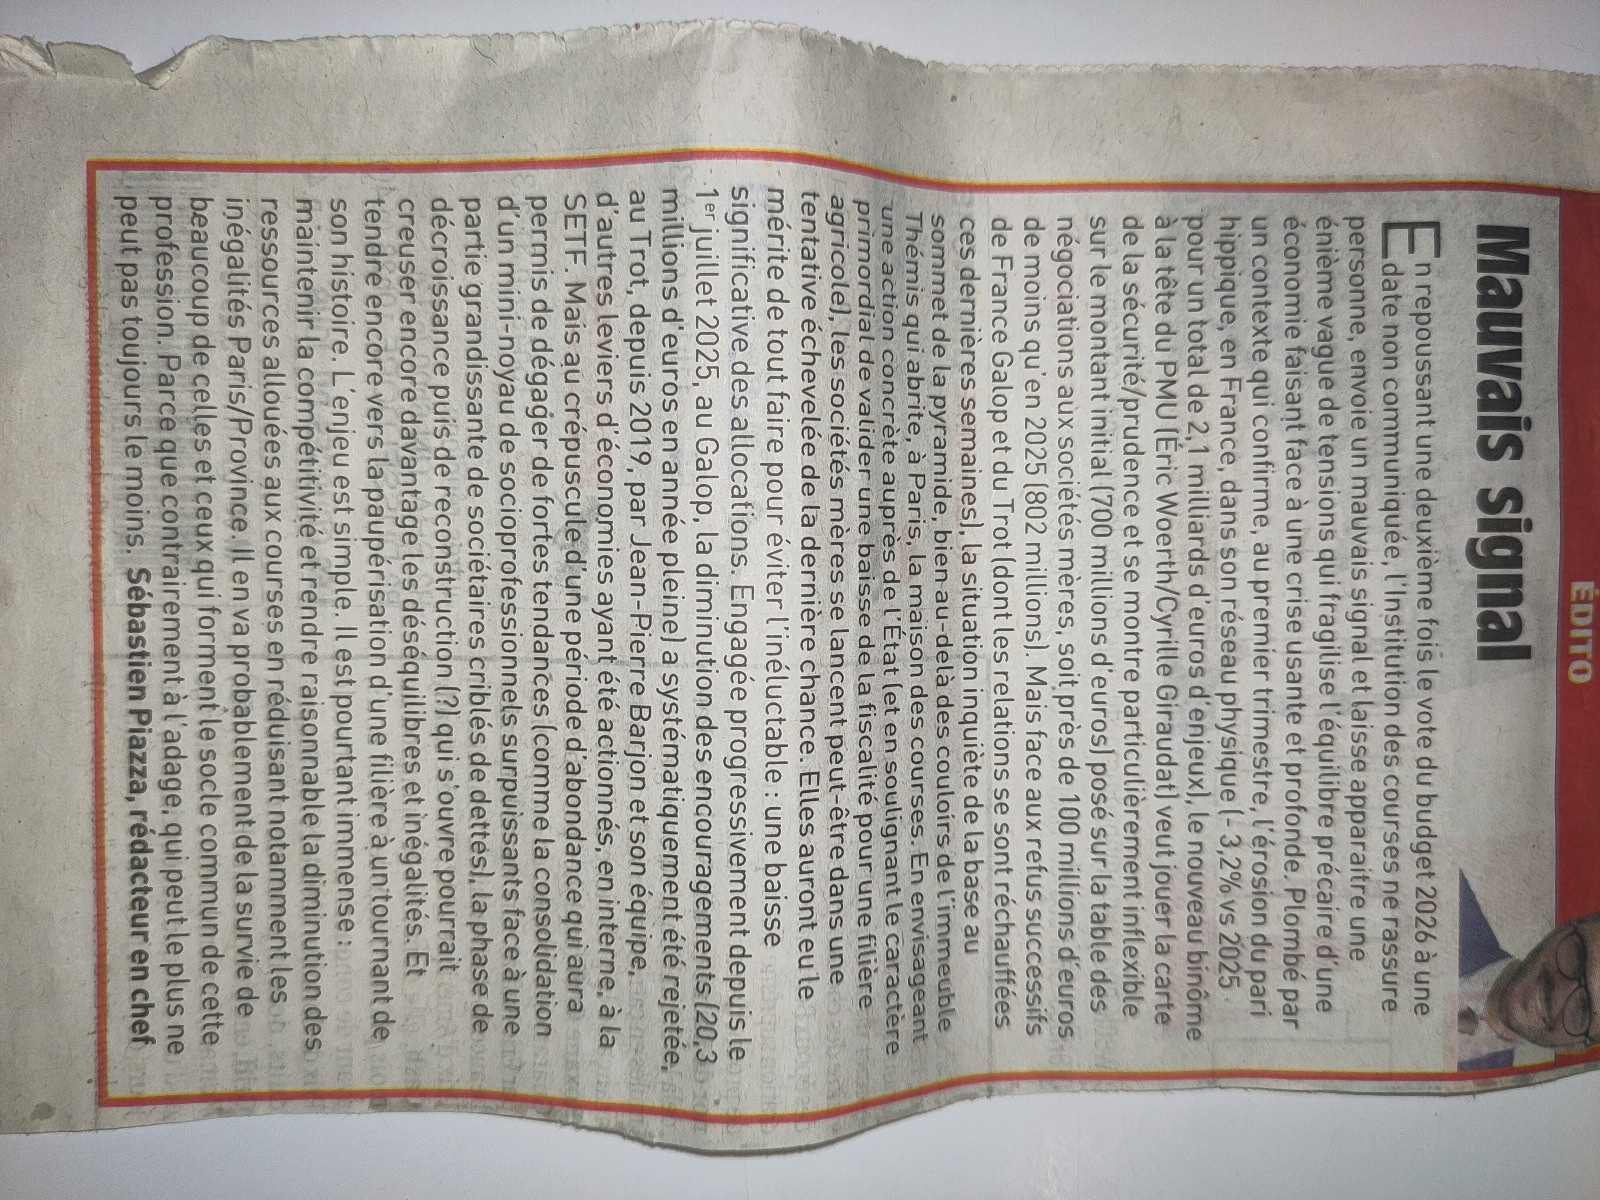 ÉDITO
Mauvais signal
En repoussant une deuxième fois le vote du budget 2026 à une
date non communiquée, l'Institution des courses ne rassure
personne, envoie un mauvais signal et laisse apparaître une
énième vague de tensions qui fragilise l'équilibre précaire d'une
économie faisant face à une crise usante et profonde. Plombé par
un contexte qui confirme, au premier trimestre, l'érosion du pari
hippique, en France, dans son réseau physique (- 3,2% vs 2025
pour un total de 2,1 milliards d'euros d'enjeux), le nouveau binôme
à la tête du PMU (Éric Woerth/Cyrille Giraudat) veut jouer la carte
de la sécurité/prudence et se montre particulièrement inflexible
sur le montant initial (700 millions d'euros) posé sur la table des
négociations aux sociétés mères, soit près de 100 millions d'euros
de moins qu'en 2025 (802 millions). Mais face aux refus successifs
de France Galop et du Trot (dont les relations se sont réchauffées
ces dernières semaines), la situation inquiète de la base au
sommet de la pyramide, bien au-delà des couloirs de l'immeuble
Thémis qui abrite, à Paris, la maison des courses. En envisageant
une action concrète auprès de l'État (et en soulignant le caractère
primordial de valider une baisse de la fiscalité pour une filière
agricole), les sociétés mères se lancent peut-être dans une
tentative échevelée de la dernière chance. Elles auront eu le
mérite de tout faire pour éviter l'inéluctable : une baisse
significative des allocations. Engagée progressivement depuis le
1er juillet 2025, au Galop, la diminution des encouragements (20,3
millions d'euros en année pleine) a systématiquement été rejetée,
au Trot, depuis 2019, par Jean-Pierre Barjon et son équipe,
d'autres leviers d'économies ayant été actionnés, en interne, à la
SETF. Mais au crépuscule d'une période d'abondance qui aura
permis de dégager de fortes tendances (comme la consolidation
d'un mini-noyau de socioprofessionnels surpuissants face à une
partie grandissante de sociétaires criblés de dettes), la phase de
décroissance puis de reconstruction (?) qui s'ouvre pourrait
creuser encore davantage les déséquilibres et inégalités. Et
tendre encore vers la paupérisation d'une filière à un tournant de
son histoire. L'enjeu est simple. Il est pourtant immense :
maintenir la compétitivité et rendre raisonnable la diminution des
ressources allouées aux courses en réduisant notamment les
inégalités Paris/Province. Il en va probablement de la survie de
beaucoup de celles et ceux qui forment le socle commun de cette
profession. Parce que contrairement à l'adage, qui peut le plus ne
peut pas toujours le moins. Sébastien Piazza, rédacteur en chef